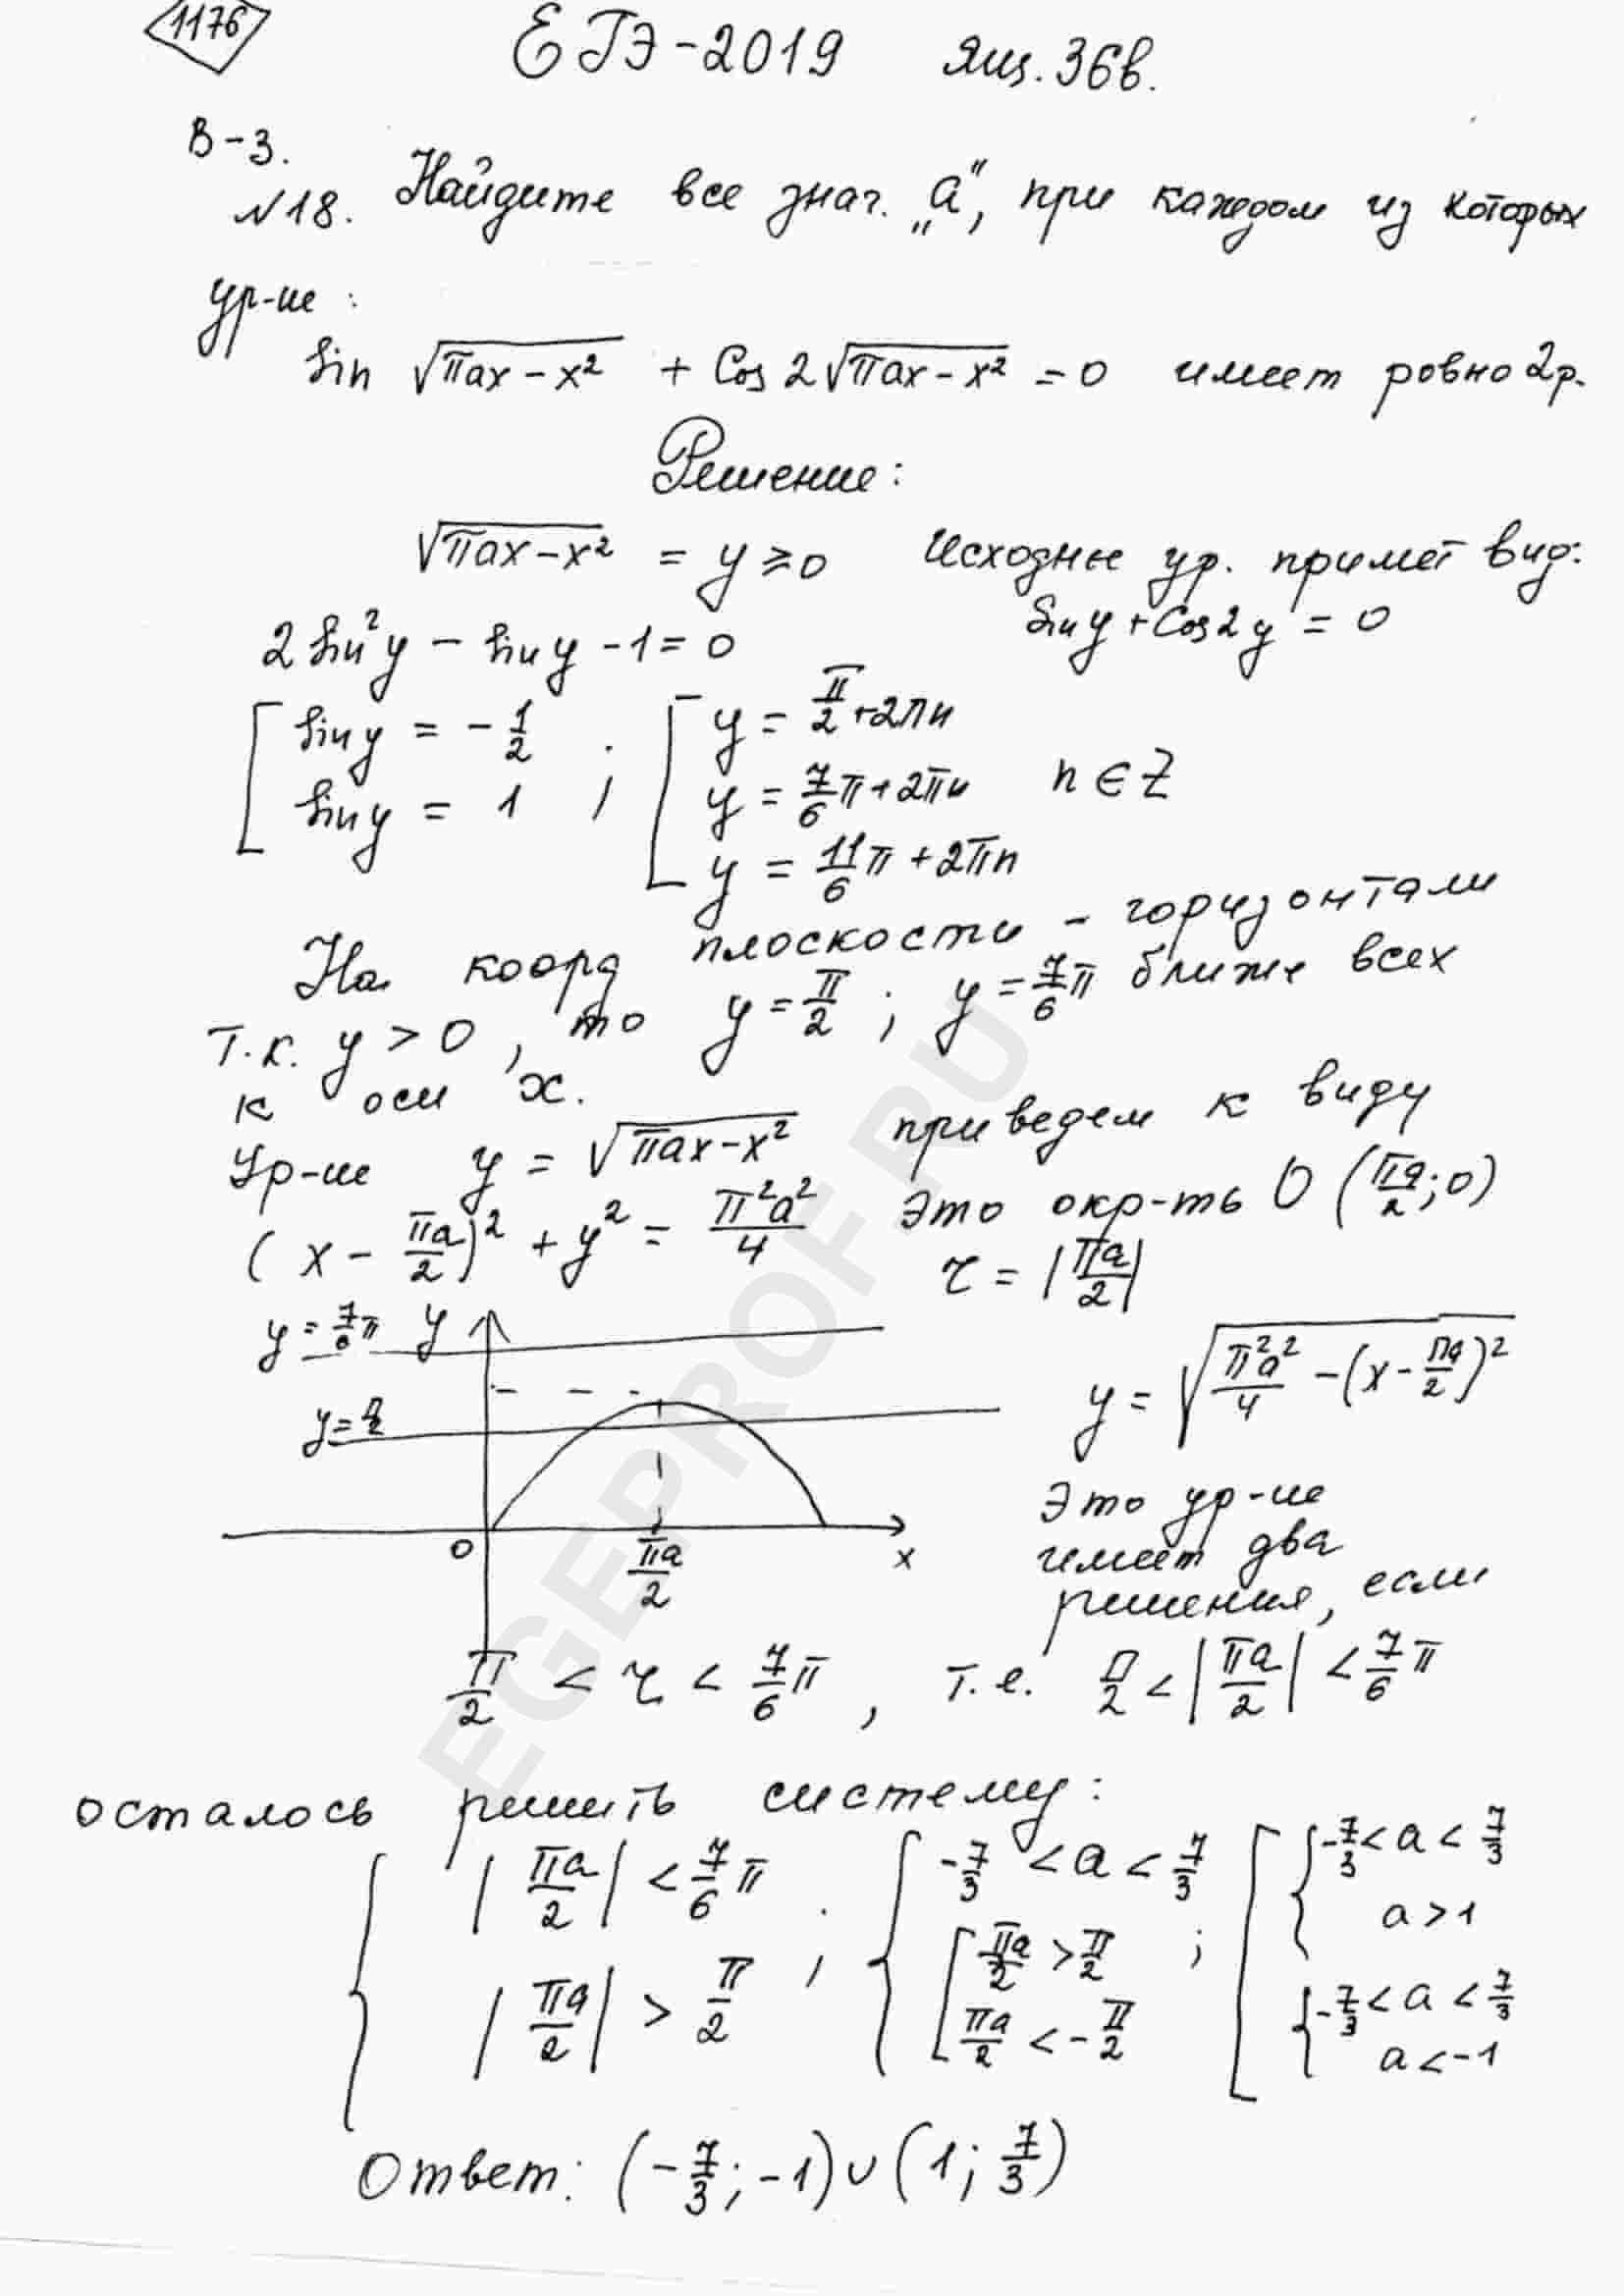 1176
ЕГЭ-2019 Ящ. 36в.
В-3.
№18. Найдите все знач. „a“, при каждом из которых
ур-ие:
Sin √(πax - x²) + Cos 2√(πax - x²) = 0 имеет ровно 2р.
Решение:
√(πax - x²) = y ≥ 0 Исходные ур. примет вид:
2 Sin²y - siny - 1 = 0 Siny + Cos2y = 0
[ Siny = -1/2 ; [ y = π/2 + 2πn
Siny = 1 y = 7/6 π + 2πn n ∈ Z
y = 11/6 π + 2πn
На коорд плоскости - горизонтали
т.к. y > 0, то y = π/2 ; y = 7/6 π ближе всех
к оси x.
Ур-ие y = √(πax - x²) приведем к виду
(x - πa/2)² + y² = π²a²/4 Это окр-ть O (πa/2; 0)
r = |πa/2|
y = 7/6 π y
y = π/2
0 πa/2 x
y = √(π²a²/4 - (x - πa/2)²)
Это ур-ие
имеет два
решения, если
π/2 < r < 7/6 π, т.е. π/2 < |πa/2| < 7/6 π
осталось решить систему:
{ |πa/2| < 7/6 π ; { -7/3 < a < 7/3 ; [ { -7/3 < a < 7/3
|πa/2| > π/2 [ πa/2 > π/2 a > 1
πa/2 < -π/2 { -7/3 < a < 7/3
a < -1
Ответ: (-7/3; -1) ∪ (1; 7/3)
EGEPROF.RU